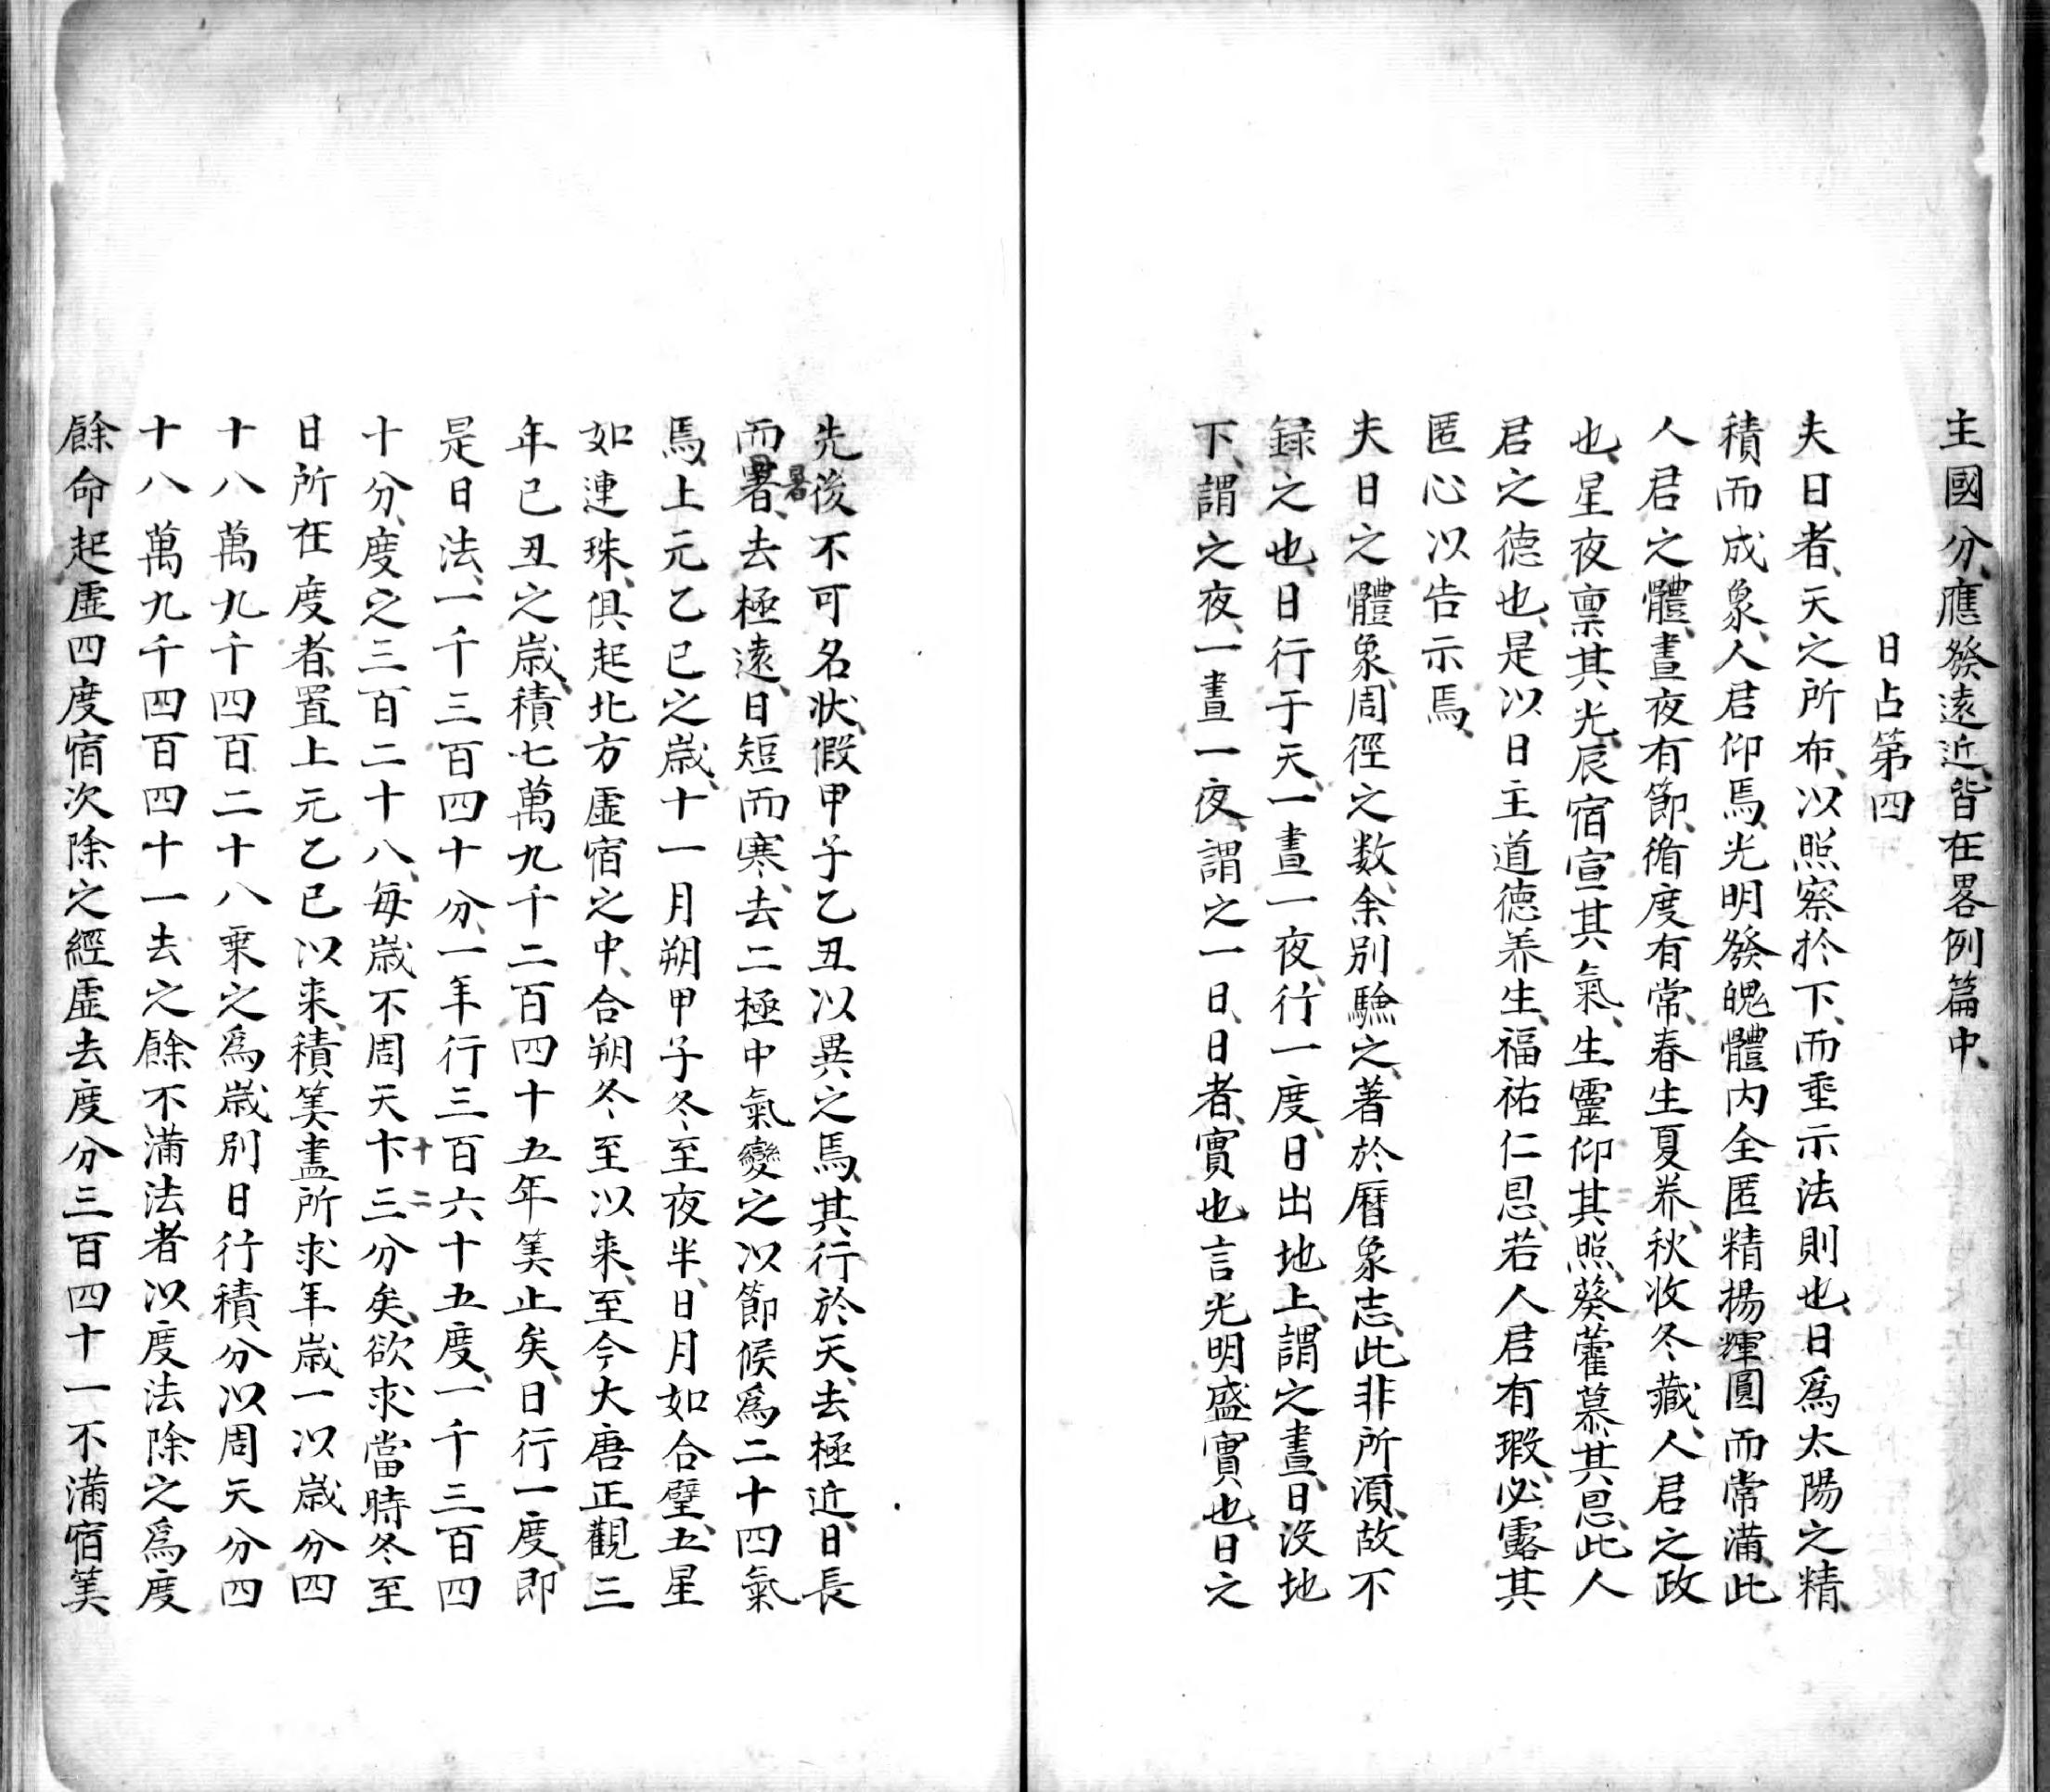 主國分、應發遠近、皆在畧例篇中、
日占第四
夫日者、天之所布、以照察扵下、而垂示法則也、日爲太陽之精、
積而成象、人君仰焉、光明發魄體内全匿精揚輝圓而常滿、此
人君之體、晝夜有節、循度有常、春生夏养、秋收冬藏、人君之政
也、星夜禀其光、辰宿宣其氣、生靈仰其照、葵藿慕其恩、此人
君之德也、是以日主道德养生、福祐仁恩、若人君有瑕、必露其
匿心以告示焉、
夫日之體象、周徑之数、余別驗之、著於曆象志、此非所湏、故不
録之也、日行于天、一晝一夜、行一度、日出地上、謂之晝、日没地
下、謂之夜、一晝一夜、謂之一日、日者、實也言光明盛實也、日之
先後不可名状、假甲子乙丑以異之焉、其行於天、去極近、日長
而署、暑去極遠、日短而寒、去二極中氣變之以節候爲二十四氣
焉、上元乙巳之歳、十一月朔甲子冬至夜半、日月如合璧、五星
如連珠、俱起北方虛宿之中、合朔冬至以来、至今大唐正觀三
年已丑之歳、積七萬九千二百四十五年筭止矣、日行一度、即
是日法、一千三百四十分、一年行三百六十五度、一千三百四
十分、度之三百二十八、每歳不周天卞十三二分矣、欲求當時冬至
日所在度者、置上元乙巳以来、積筭盡所求年歳一以歳分四
十八萬九千四百二十八乗之爲歳別日行積分以周天分四
十八萬九千四百四十一去之餘不滿法者以度法除之爲度
餘命起虛四度宿次除之經虛去度分三百四十一不滿宿筭